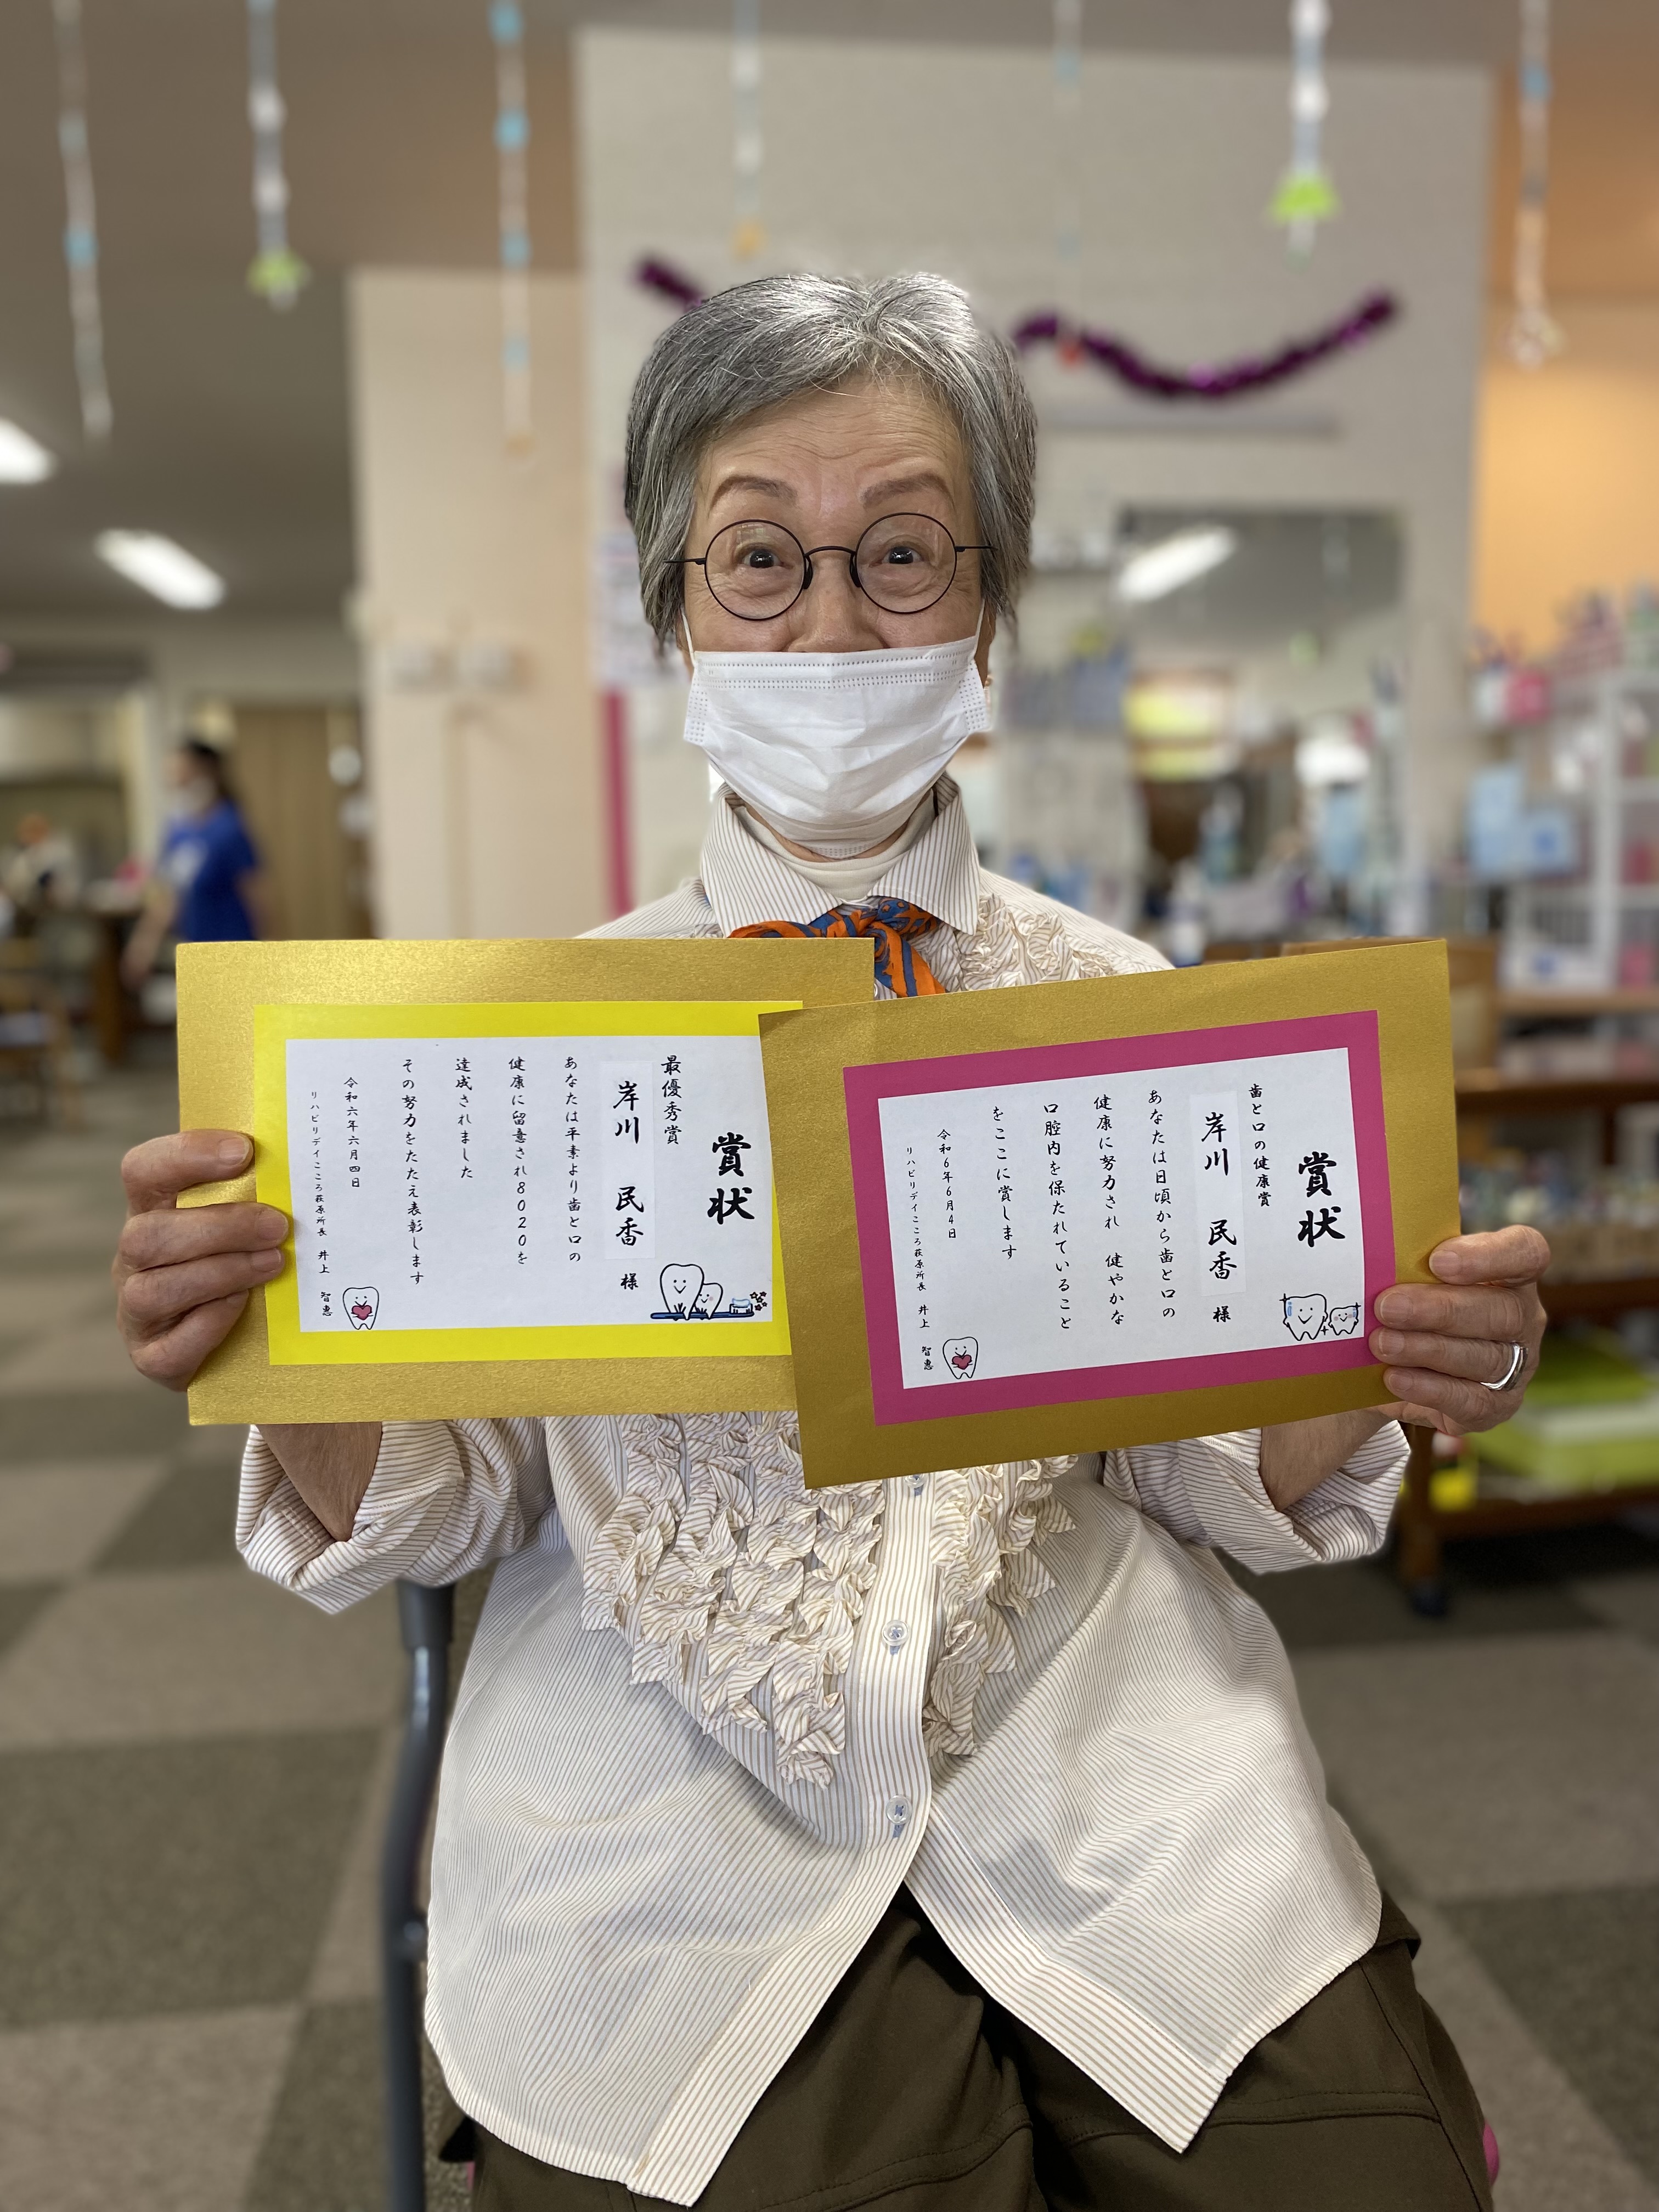 賞状
最優秀賞
岸川 民香 様
あなたは平素より歯と口の
健康に留意され8020を
達成されました
その努力をたたえ表彰します
令和六年六月四日
リハビリデイこころ萩原所長 井上 智恵
賞状
歯と口の健康賞
岸川 民香 様
あなたは日頃から歯と口の
健康に努力され 健やかな
口腔内を保たれていること
をここに賞します
令和6年6月4日
リハビリデイこころ萩原所長 井上 智恵